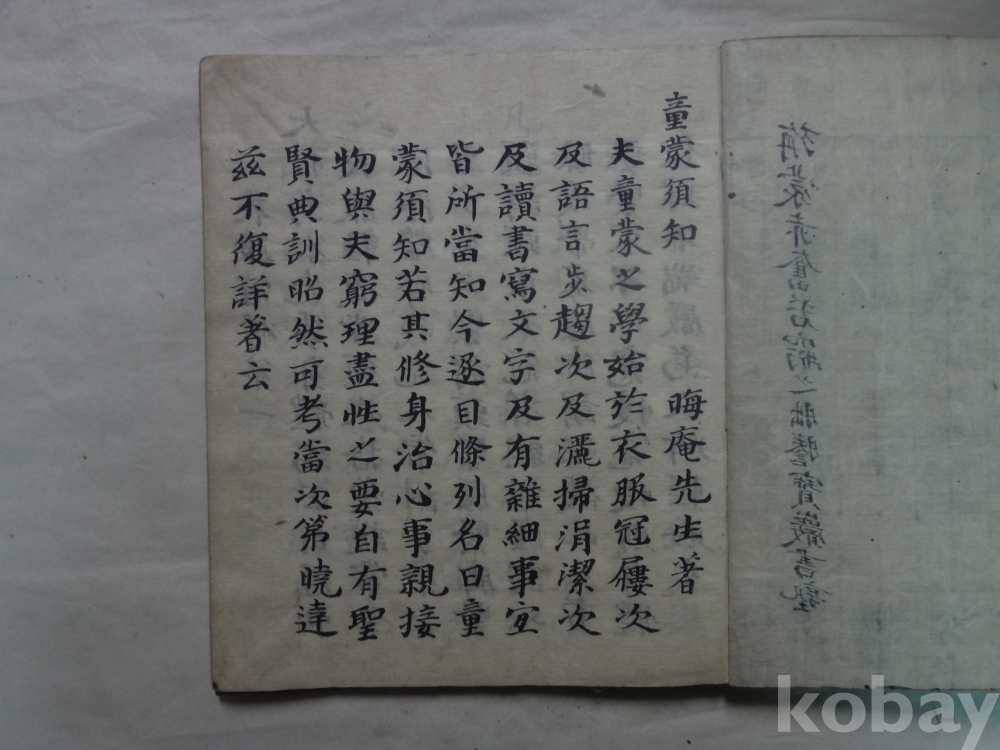 童蒙須知 晦庵先生著
夫童蒙之學始於衣服冠屨次
及語言步趨次及灑掃涓潔次
及讀書寫文字及有雜細事宜
皆所當知今逐目條列名曰童
蒙須知若其修身治心事親接
物與夫窮理盡性之要自有聖
賢典訓昭然可考當次第曉達
茲不復詳著云
kobay